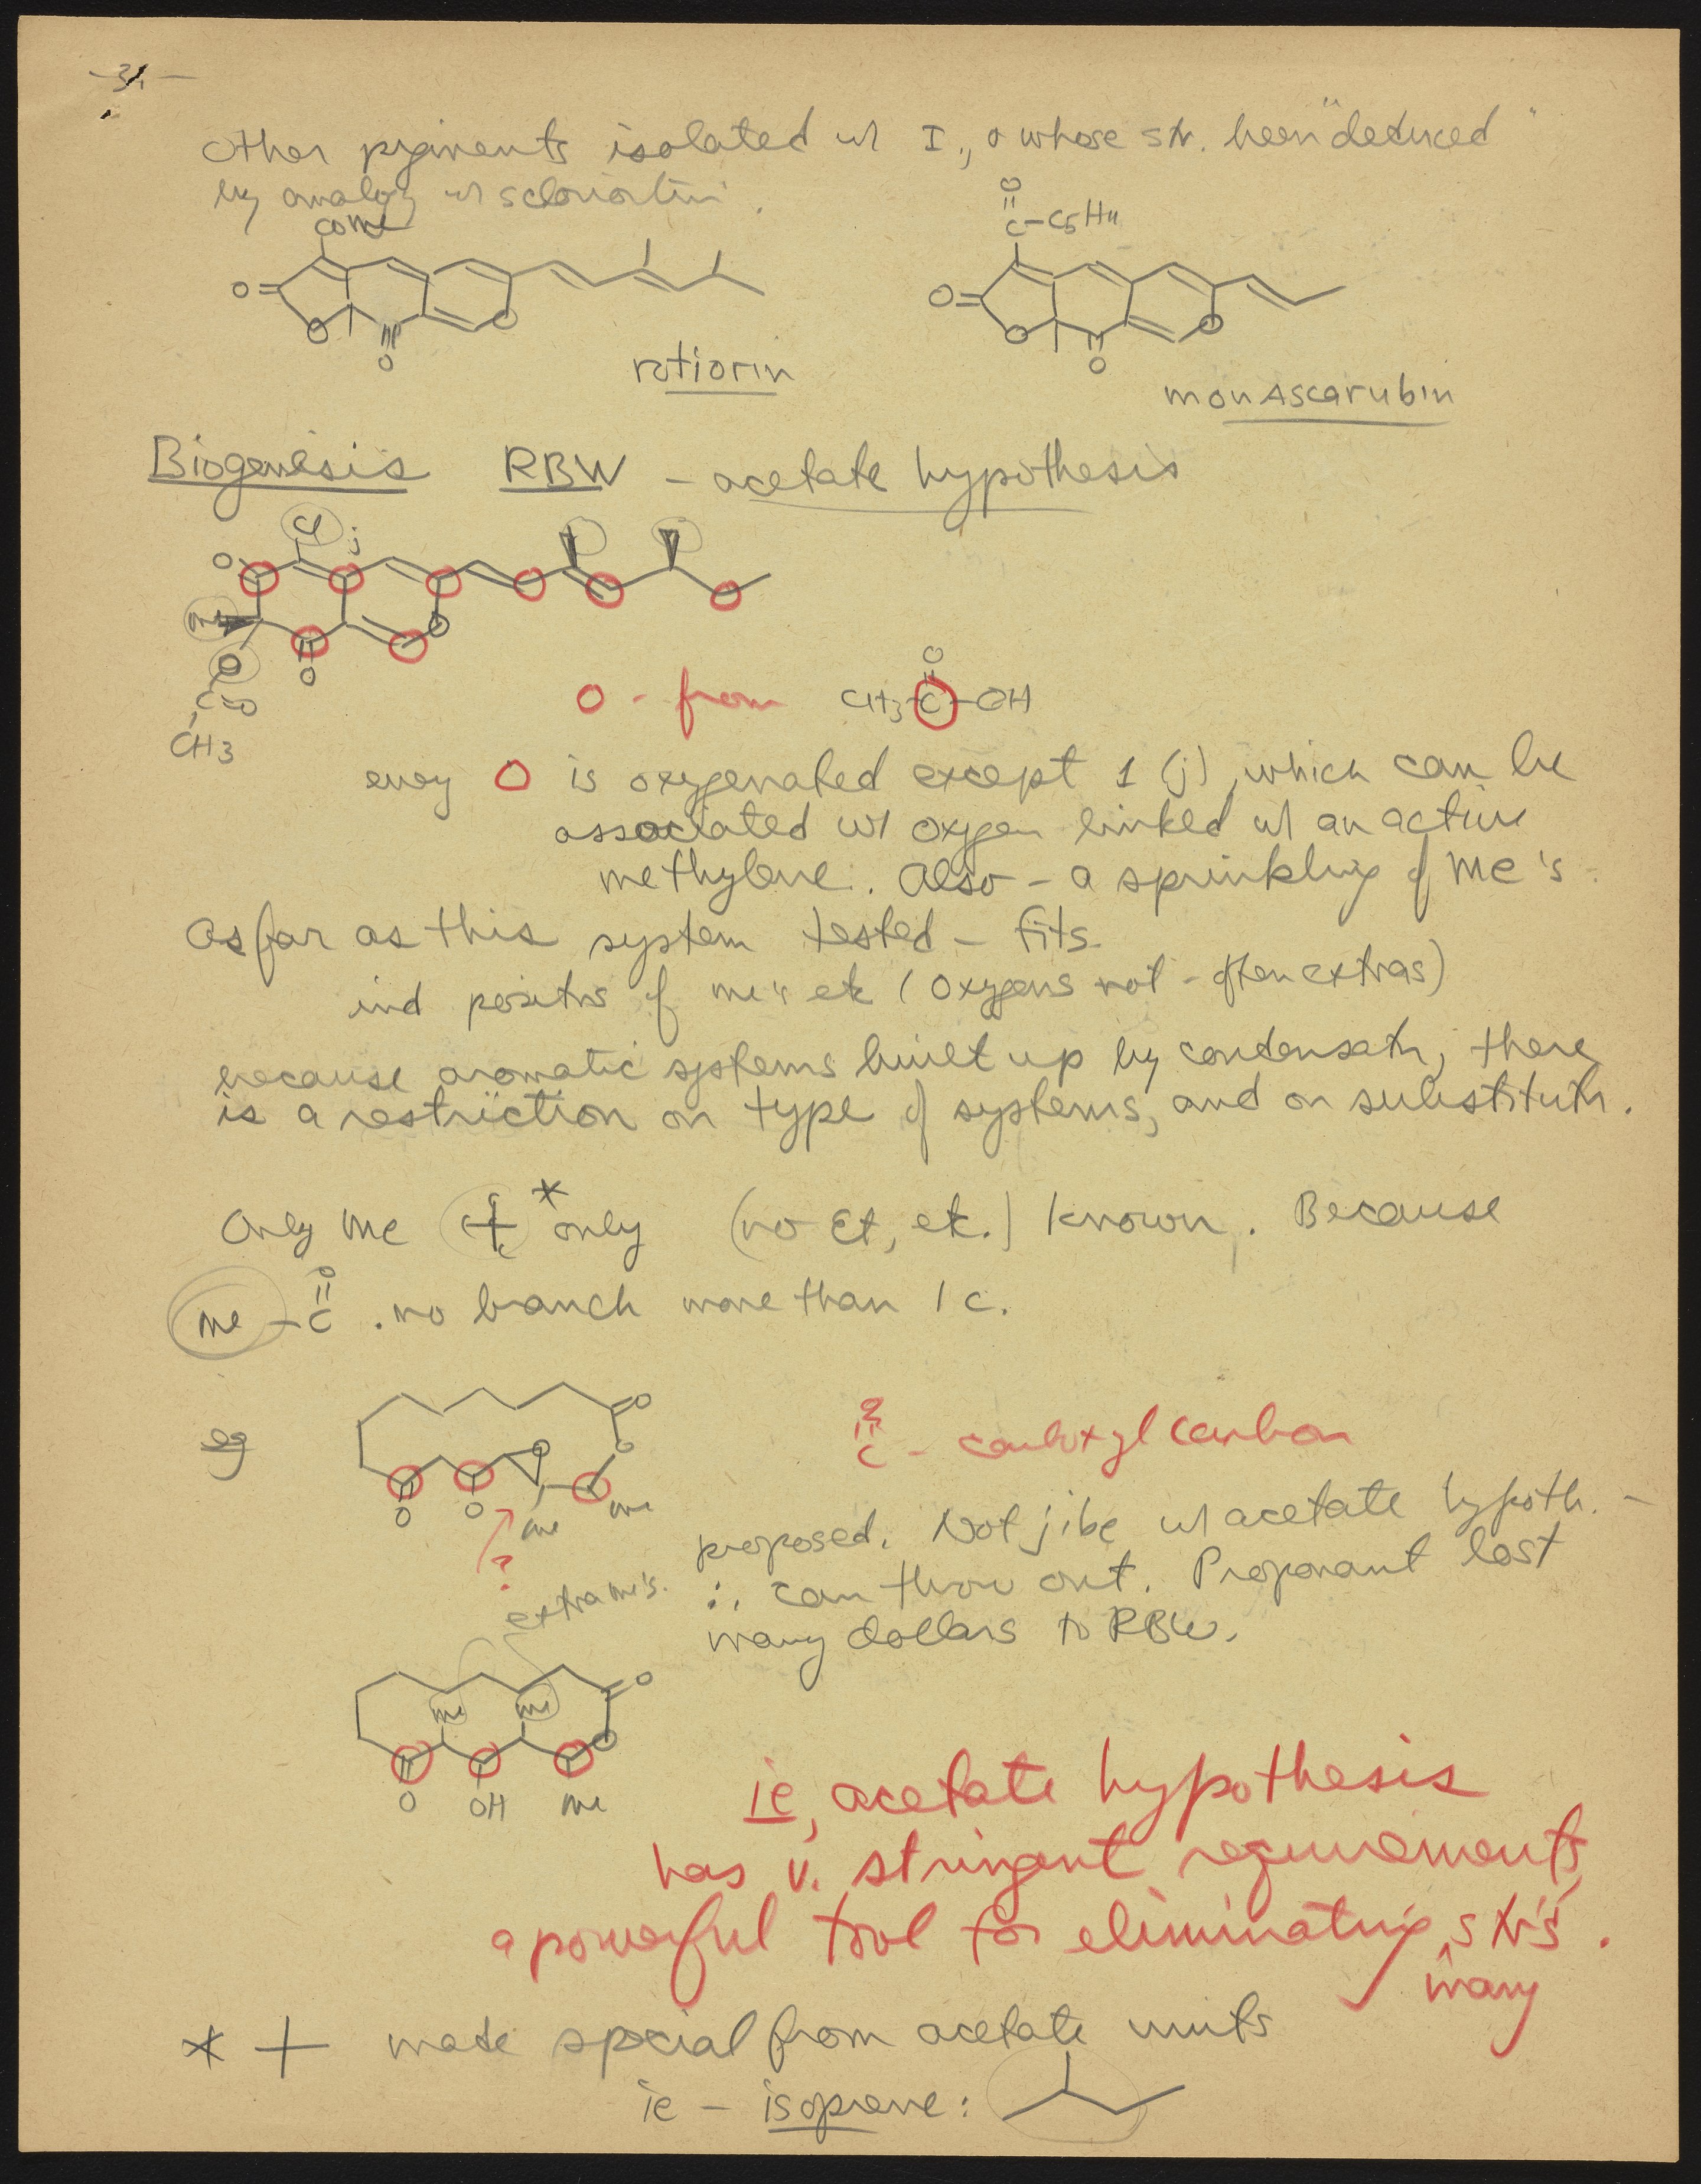 -31-
Other pigments isolated w/ I., & whose str. been "deduced"
by analogy w/ scleriotin.
COMe
O
C-C5H11
O=
O
O
O
O=
O
O
O
rotiorin
monascarubin
Biogenesis RBW - acetate hypothesis
Cl
j
O
Me
O
O
O
C=O
CH3
O - from CH3-C-OH
O
every O is oxygenated except 1 (j), which can be
associated w/ oxygen linked w/ an active
methylene. Also - a sprinkling of Me's.
As far as this system tested - fits.
ind positns of me's etc (oxygens not - often extras)
because aromatic systems built up by condensatn, there
is a restriction on type of systems, and on substitutn.
Only Me C+C * only (no Et, etc.) known. Because
O
Me-C . no branch more than 1 C.
eg
O
O
O
O
O
Me
Me
?
O
C - carboxyl carbon
proposed. Not jibe w/ acetate hypoth. -
∴ can throw out. Proponant lost
many dollars to RBW.
extra me's.
O
me
me
O
O
OH
Me
ie, acetate hypothesis
has v. stringent requirements,
a powerful tool for eliminating many str's.
* + made special from acetate units
ie - isoprene: